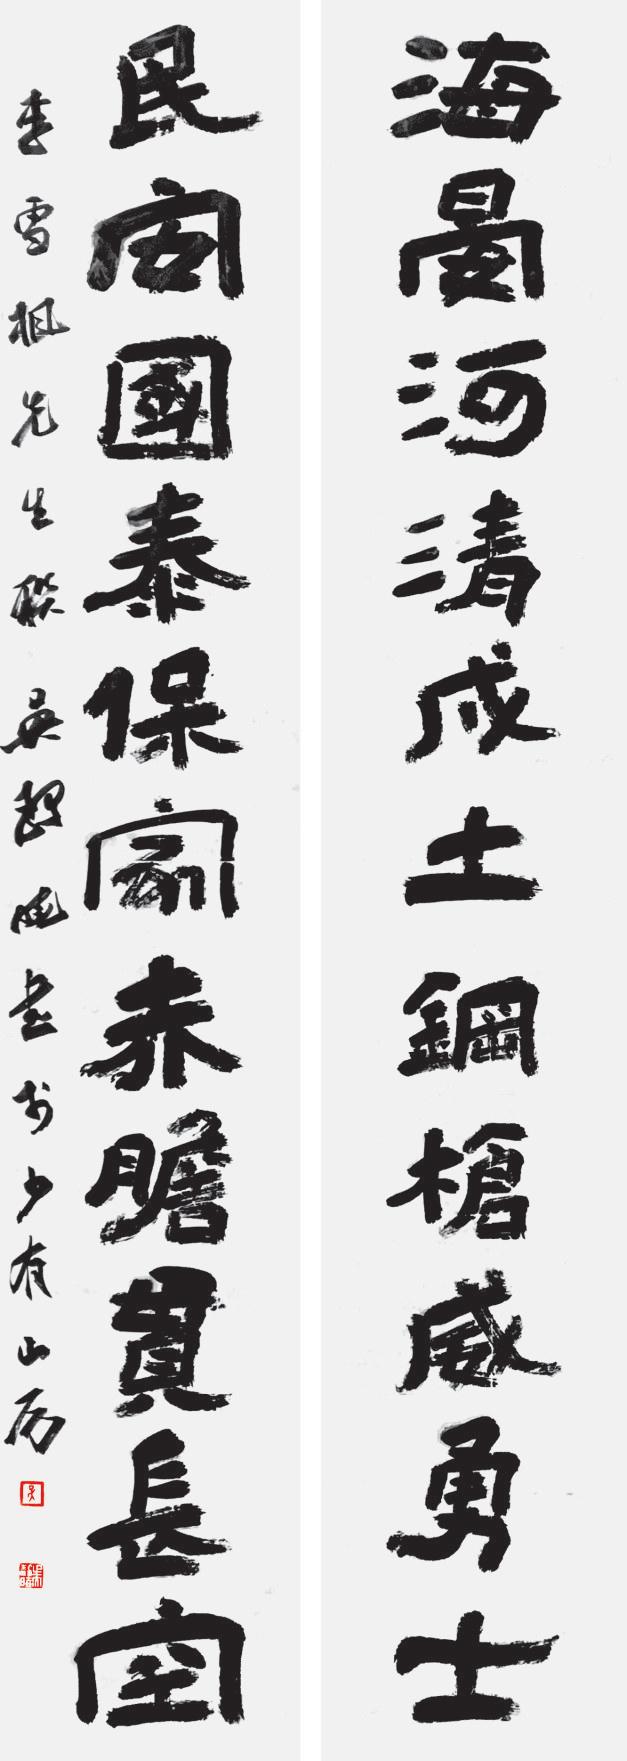 海晏河清戍土鋼槍威勇士
民安國泰保家赤膽貫長空
李雪楓先生聯 吳書於少有山房